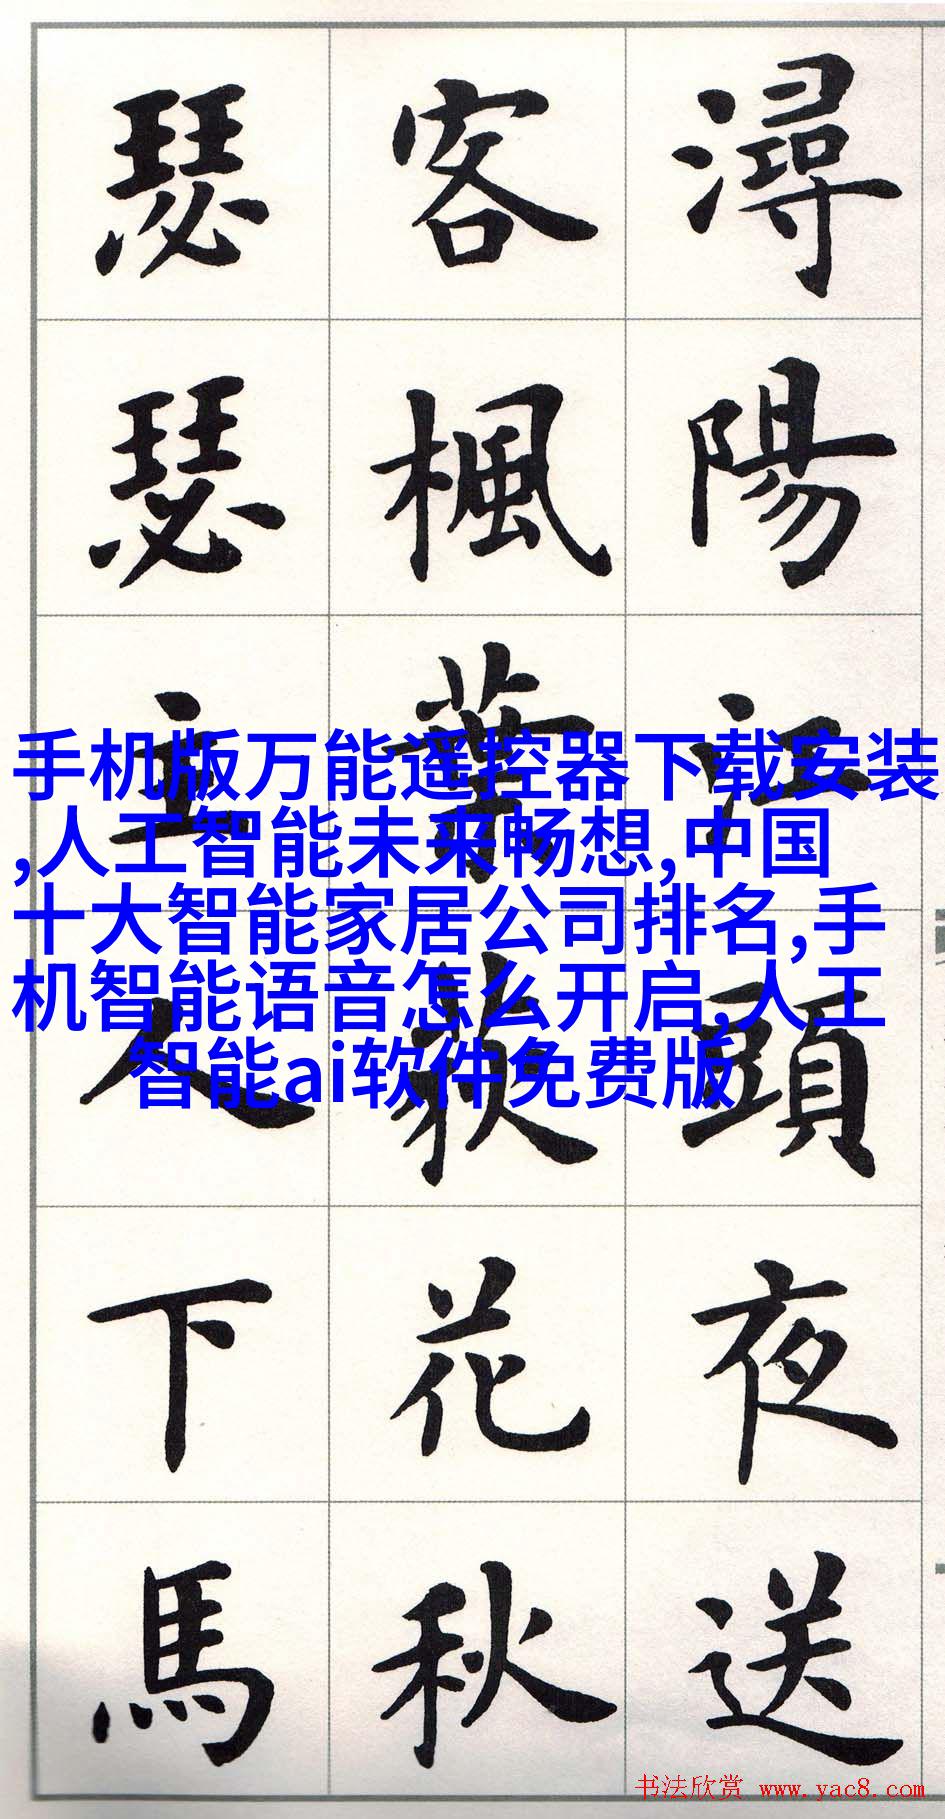 潯陽江頭夜送
客楓葉荻花秋
瑟瑟主人下馬
手机版万能遥控器下载安装
,人工智能未来畅想,中国
十大智能家居公司排名,手
机智能语音怎么开启,人工
智能ai软件免费版
书法欣赏 www.yac8.com